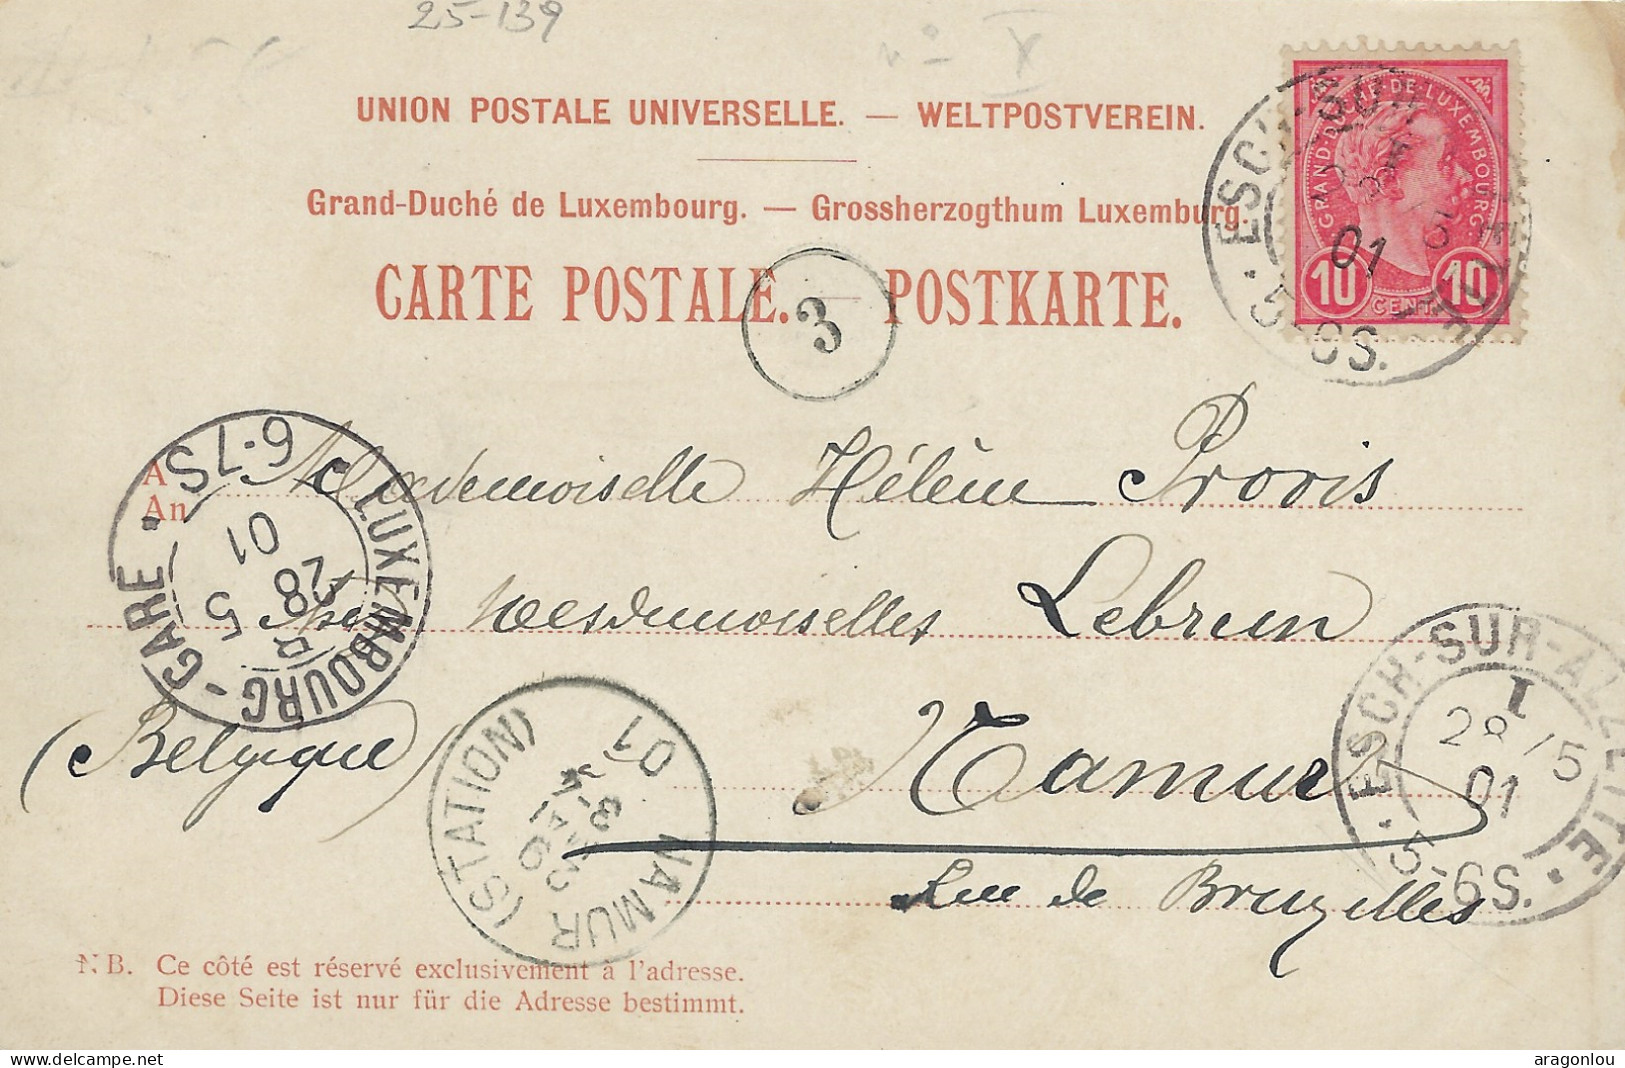 25-139
UNION POSTALE UNIVERSELLE. — WELTPOSTVEREIN.
Grand-Duché de Luxembourg. — Grossherzogthum Luxemburg.
CARTE POSTALE. — POSTKARTE.
3
GRAND-DUCHÉ DE LUXEMBOURG.
10 CENT. 10
ESCH-SUR-
01
5-6S.
A
An
Mademoiselle Hélène Provis
Mesdemoiselles Lebrun
Namur
(Belgique)
Rue de Bruxelles
LUXEMBOURG-GARE
6-7S
28 5
01
NAMUR (STATION)
01
ESCH-SUR-ALZETTE
1
28/5
01
5-6S.
N.B. Ce côté est réservé exclusivement à l'adresse.
Diese Seite ist nur für die Adresse bestimmt.
aragonlou